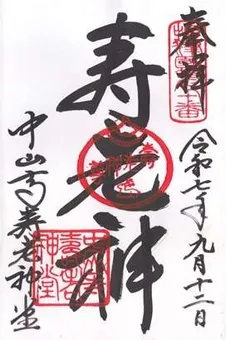 奉拝
令和七年九月十二日
寿老神
中山寺寿老神堂